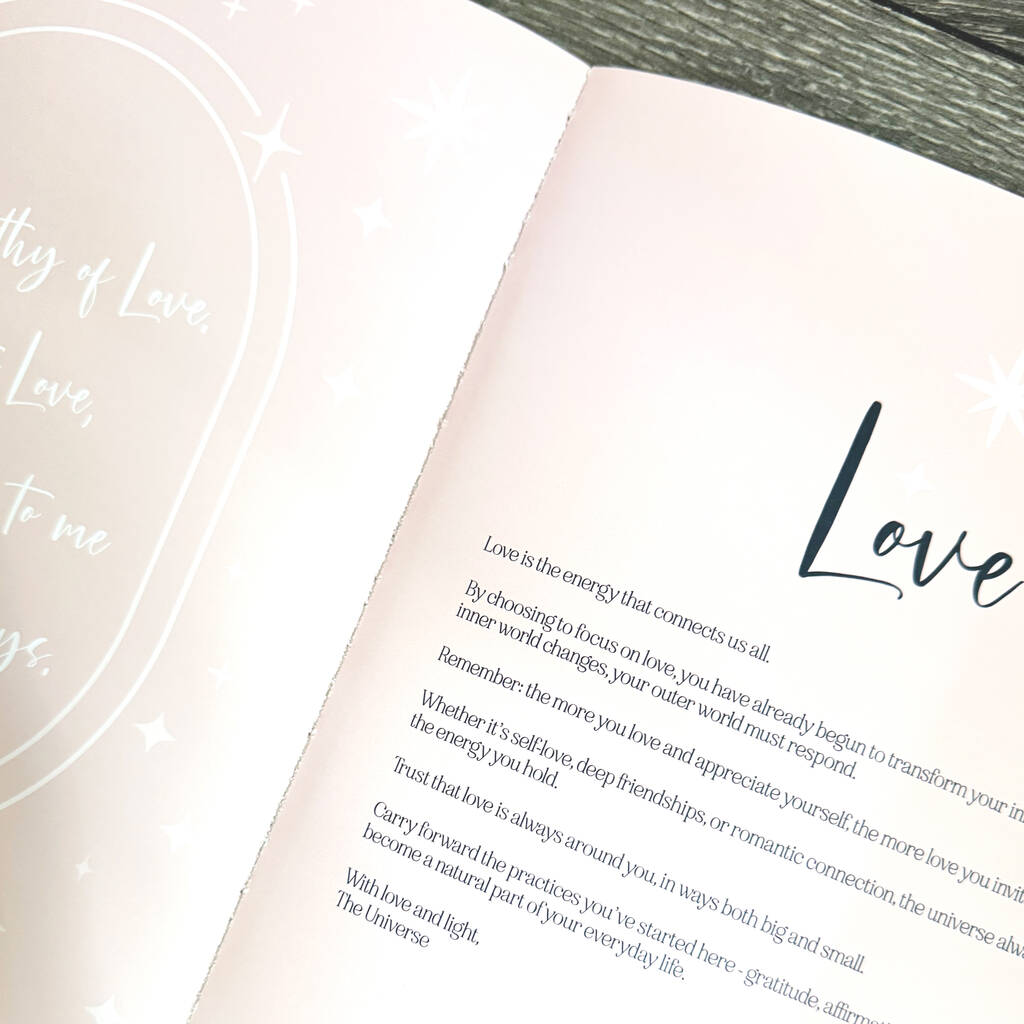 of Love.
Love,
to me
Love
Love is the energy that connects us all.
By choosing to focus on love, you have already begun to transform your
inner world changes, your outer world must respond.
Remember: the more you love and appreciate yourself, the more love you
Whether it's self-love, deep friendships, or romantic connection, the universe
the energy you hold.
Trust that love is always around you, in ways both big and small.
Carry forward the practices you've started here - gratitude,
become a natural part of your everyday life.
With love and light,
The Universe